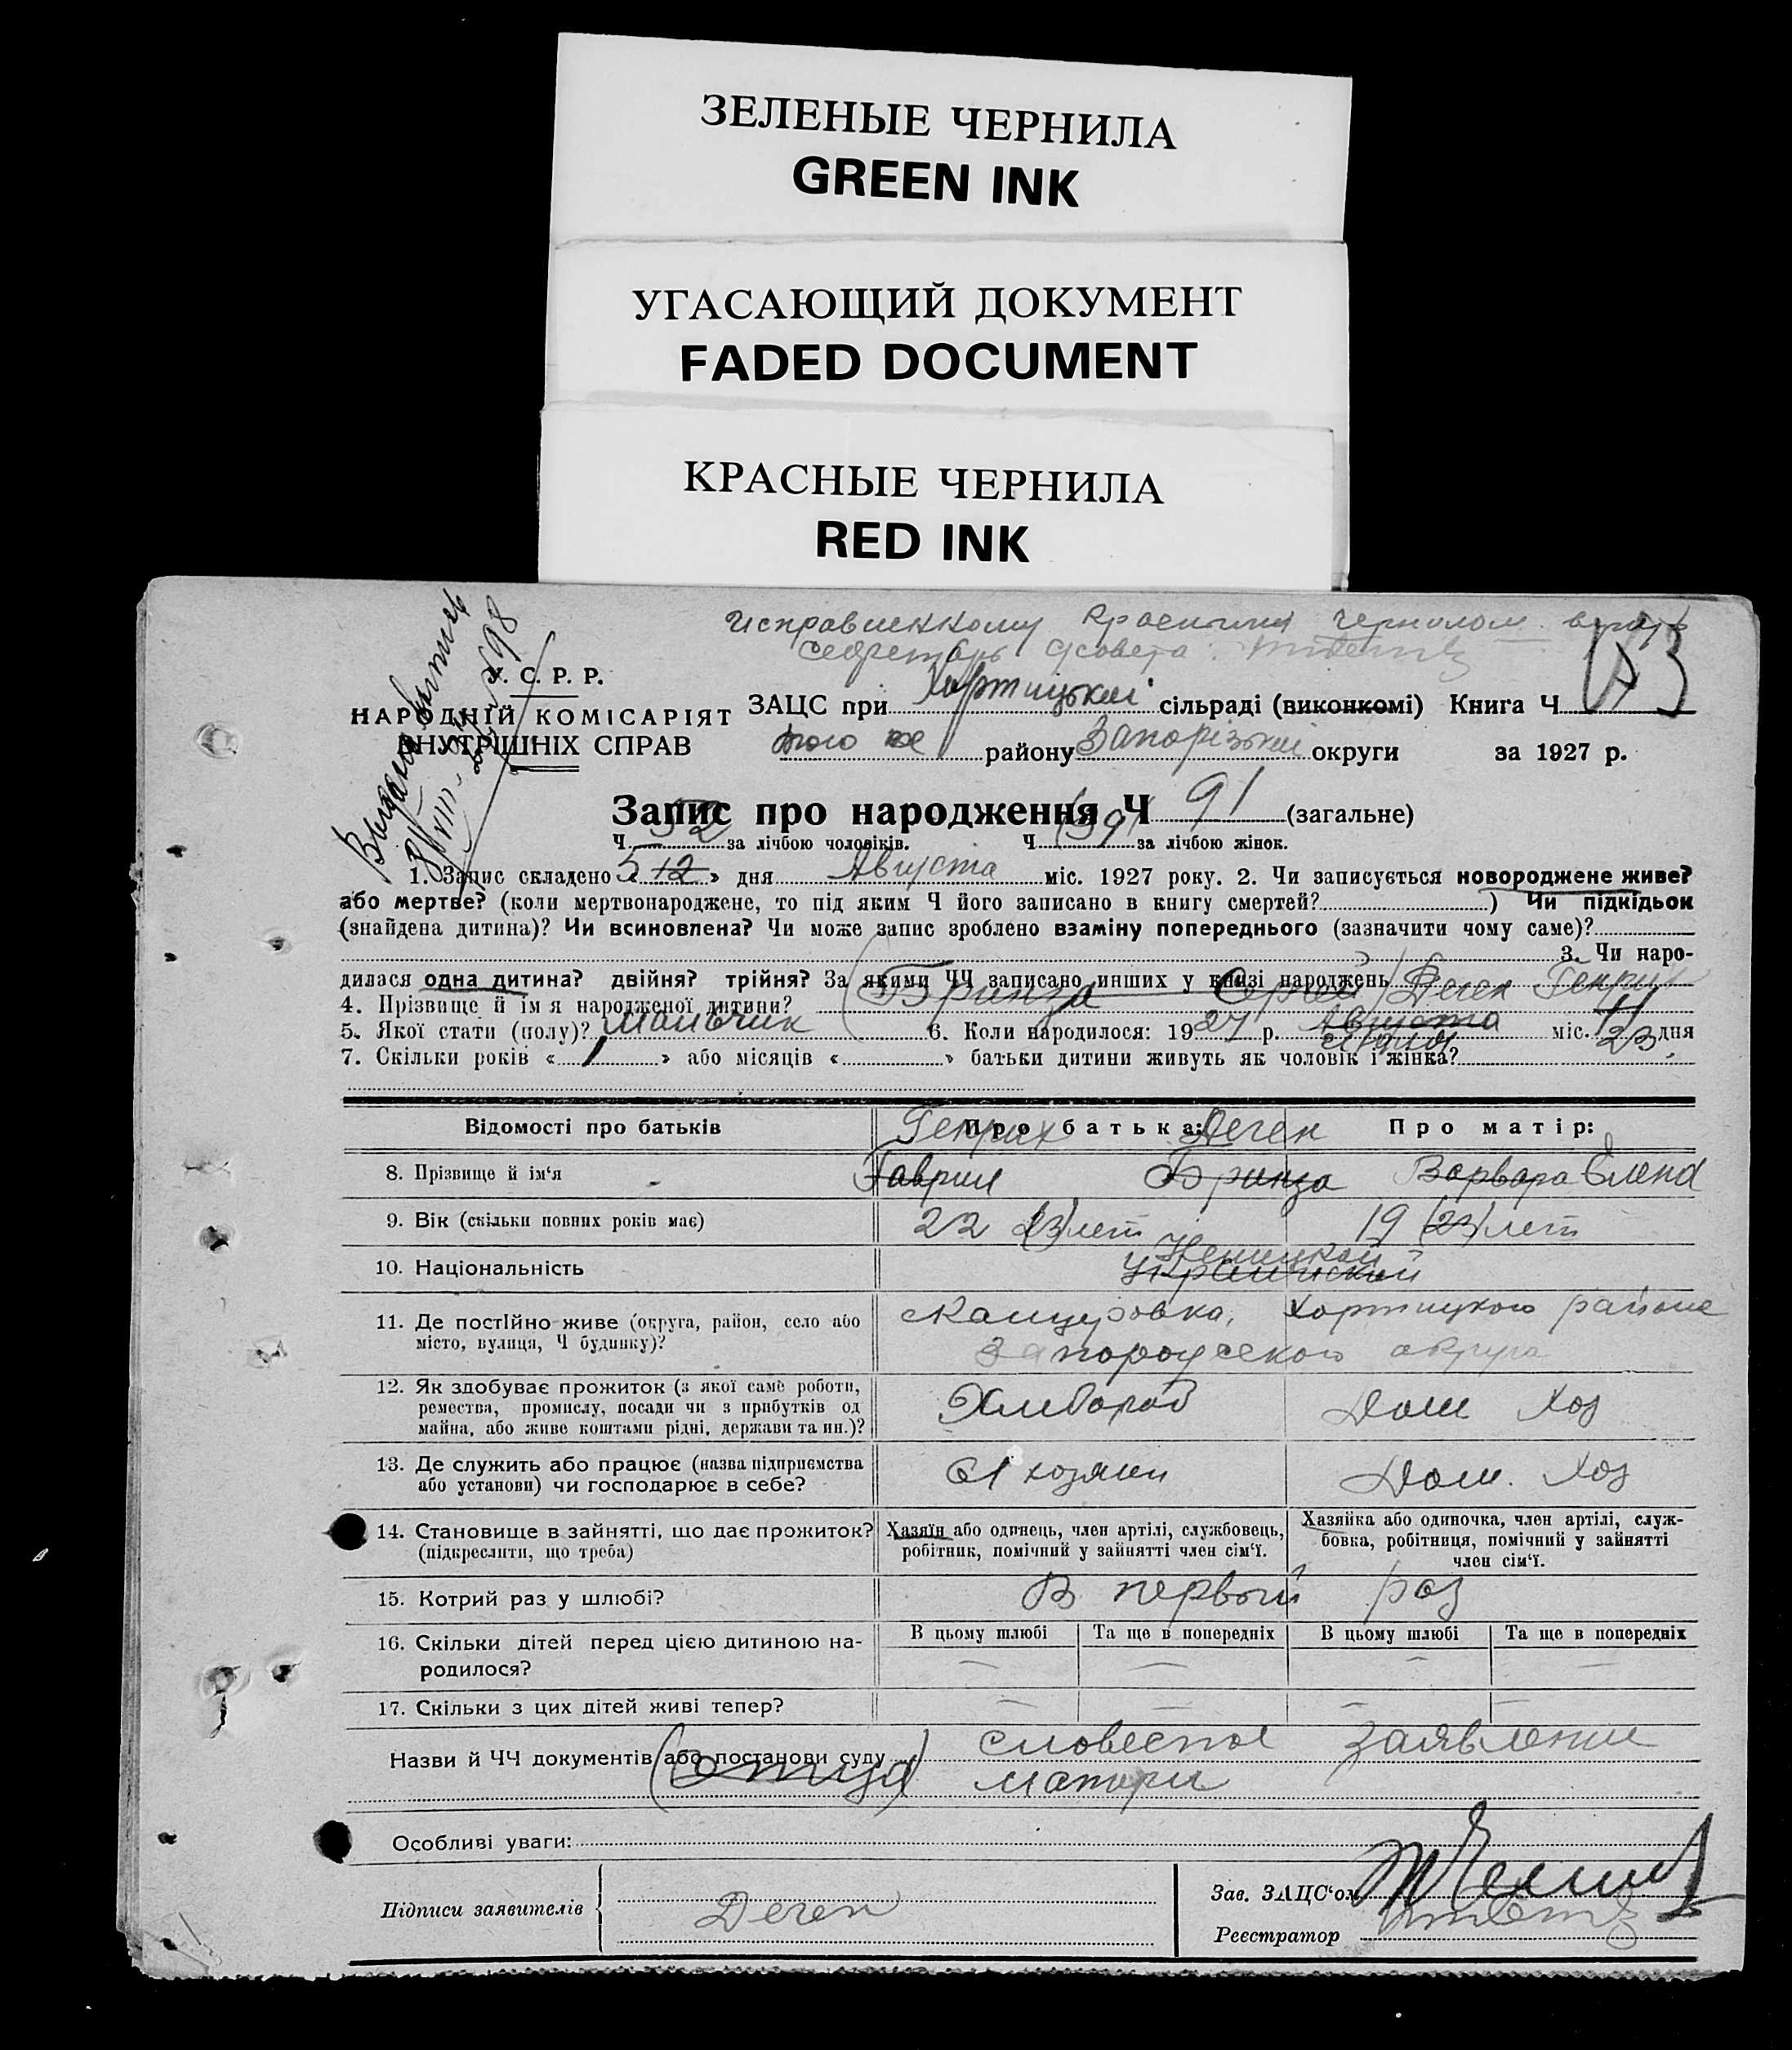 ЗЕЛЕНЫЕ ЧЕРНИЛА
GREEN INK
УГАСАЮЩИЙ ДОКУМЕНТ
FADED DOCUMENT
КРАСНЫЕ ЧЕРНИЛА
RED INK
Исправленному красными чернилом верить
секретарь
У. С. Р. Р.
НАРОДНІЙ КОМІСАРІЯТ
ВНУТРІШНІХ СПРАВ
ЗАЦС при Хортицький сільраді (виконкомі) Книга Ч
того же району Запорізький округи за 1927 р.
Запис про народження Ч 91 (загальне)
Ч 52 за лічбою чоловіків. Ч за лічбою жінок.
1. Запис складено « 5 12 » дня Августа міс. 1927 року. 2. Чи записується новороджене живе?
або мертве? (коли мертвонароджене, то під яким Ч його записано в книгу смертей? ) Чи підкідьок
(знайдена дитина)? Чи всиновлена? Чи може запис зроблено взаміну попереднього (зазначити чому саме)?
3. Чи наро-
дилася одна дитина? двійня? трійня? За якими ЧЧ записано инших у книзі народжень
4. Прізвище й ім'я народженої дитини? (Бринза Сергей) Деген Генрих
5. Якої стати (полу)? мальчик 6. Коли народилося: 1927 р. Августа міс. 23 дня
7. Скільки років « 1 » або місяців « » батьки дитини живуть як чоловік і жінка?
Відомості про батьків Про батька: Про матір:
Генрих Деген
8. Прізвище й ім'я Гаврил Бринза Варвара Елена
9. Вік (скільки повних років має) 22 (23) лет 19 (23) лет
10. Національність Немецкой
Украинской
11. Де постійно живе (округа, район, село або
місто, вулиця, Ч будинку)?
Канцеровка, Хортицкого района
Запорожского округа
12. Як здобуває прожиток (з якої саме роботи,
ремества, промислу, посади чи з прибутків од
майна, або живе коштами рідні, держави та ин.)?
Хлебороб Дом Хоз
13. Де служить або працює (назва підприємства
або установи) чи господарює в себе?
хозяин Дом. Хоз
14. Становище в зайнятті, що дає прожиток?
(підкреслити, що треба)
Хазяїн або одинець, член артілі, службовець,
робітник, помічний у зайнятті член сім'ї.
Хазяйка або одиночка, член артілі, служ-
бовка, робітниця, помічний у зайнятті
член сім'ї.
15. Котрий раз у шлюбі? В первый раз
16. Скільки дітей перед цією дитиною на-
родилося?
В цьому шлюбі Та ще в попередніх В цьому шлюбі Та ще в попередніх
17. Скільки з цих дітей живі тепер?
Назви й ЧЧ документів або постанови суду словесное заявление
(отца) матери
Особливі уваги:
Підписи заявителів Деген
Зав. ЗАЦС'ом
Реєстратор